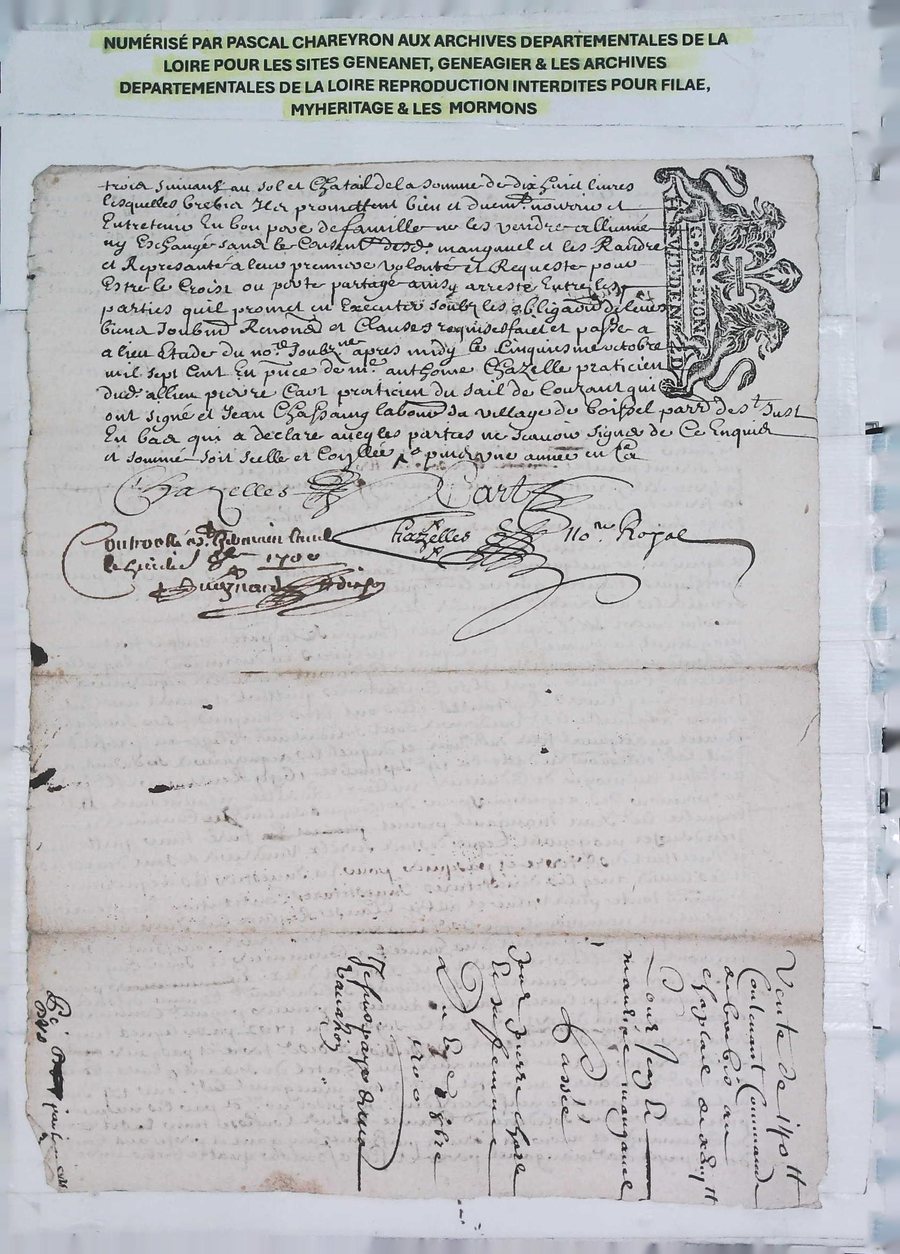 NUMÉRISÉ PAR PASCAL CHAREYRON AUX ARCHIVES DEPARTEMENTALES DE LA
LOIRE POUR LES SITES GENEANET, GENEAGIER & LES ARCHIVES
DEPARTEMENTALES DE LA LOIRE REPRODUCTION INTERDITES POUR FILAE,
MYHERITAGE & LES MORMONS
trois suivant au sol et Chatail de la somme de dix huict livres
lesquelles brebis Ils promettent bien et duemt nourrir et
Entretenir En bon pere de famille ne les vendre alliener
ny Eschangé sans le Consentt dud. mangnuel et les Randre
et Represanté a leur premiere volonté et Requeste pour
Estre le Croist ou perte partagé ainsy arresté Entre les
parties quil promet en Executer soubz les obligaons de leurs
biens soubmis Renonas et Clauses requises faict et passé a
allieu Etude du nore soubzne apres midy le Cinquiesme octobre
mil sept Cent En pnce de me anthoine Chazelle praticien
dud. allieu pierre Cart praticien du sail de Couzant qui
ont signé et Jean Chassaing labour du village de boissel parr de st Just
En bas qui a declaré avecq les parties ne scavoir signer de Ce Enquis
et sommé soit scellé et Conllé
G. DE LION
HUIT DEN
Chazelles
Cart
Chazelles Nore Royal
Controllé a St Germain laval
le 1700
Vente de 140tt
Contenant Commande
de brebis au
chaptal de 18tt
Pour Jean &
maurice mangnuel
Passée
Par Pierre
& sa femme
Du 5e 8bre
1700